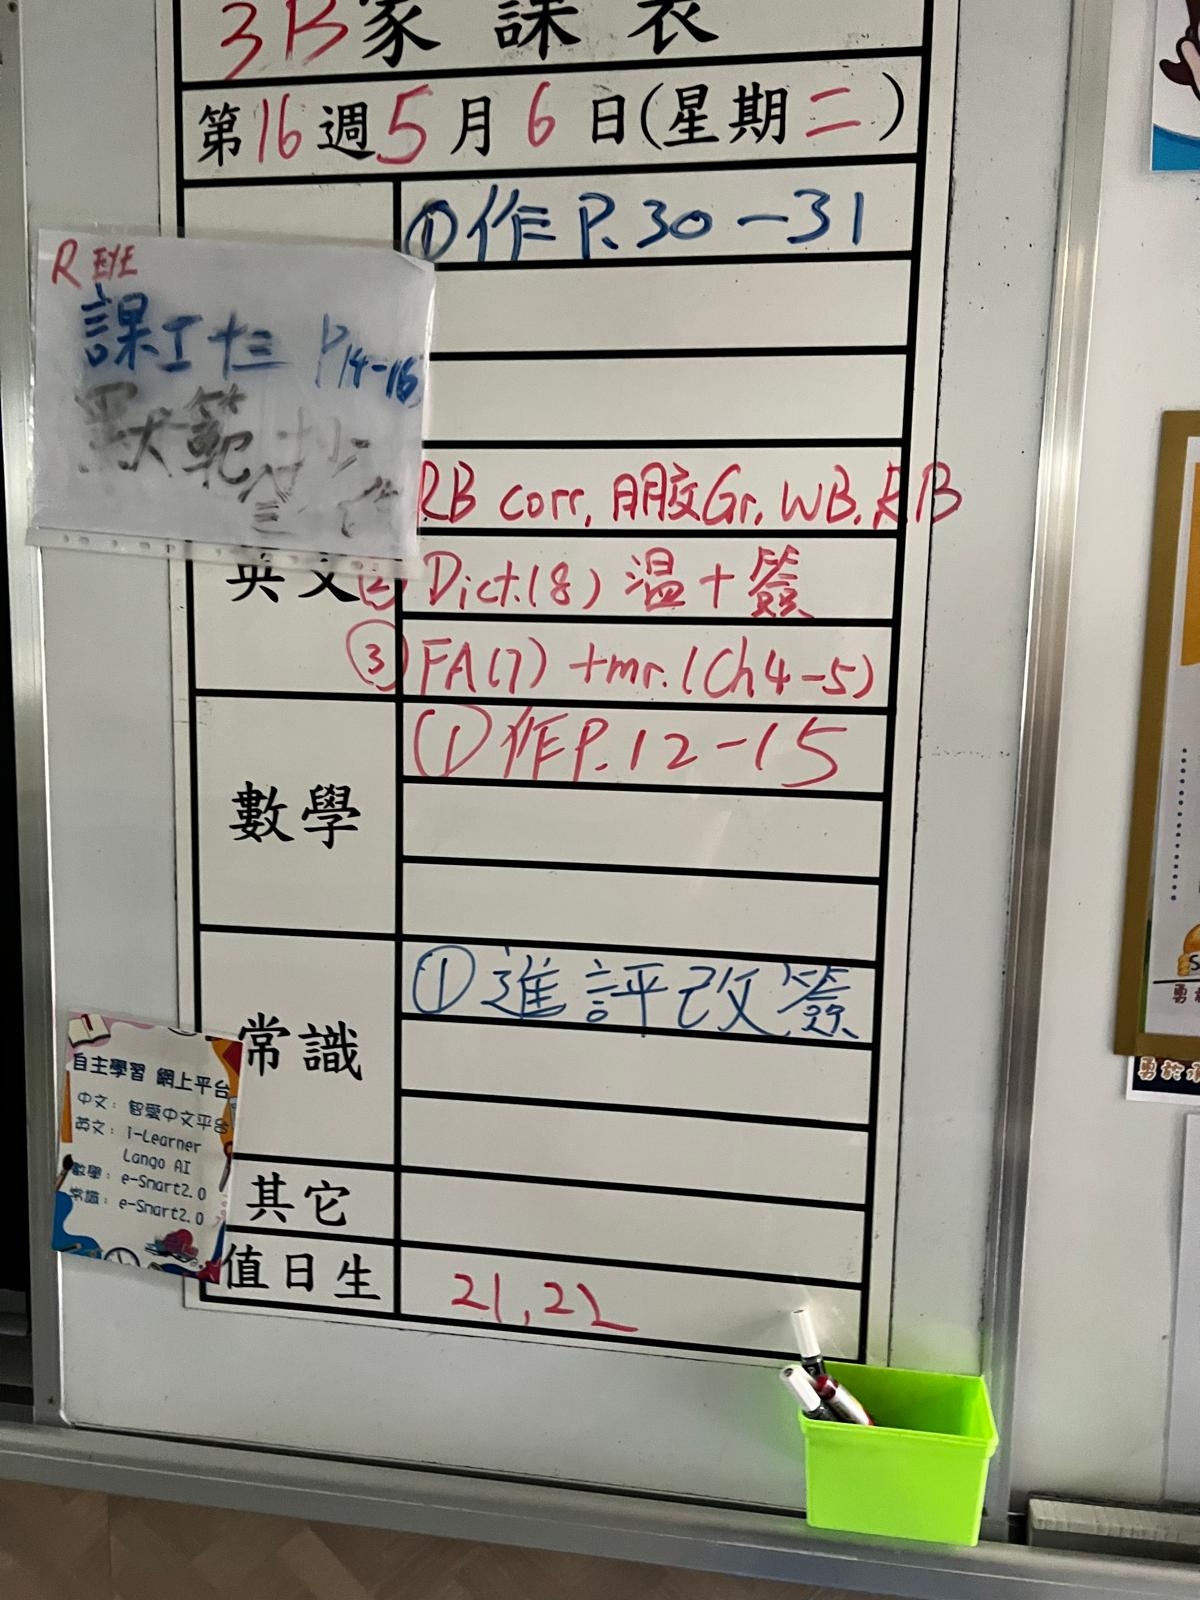 3B家課表
第16週5月6日(星期二)
①作P.30-31
R EYE
課工十三 P14-16
默範
RB corr, 明膠Gr. WB. RB
英文
② Dict.(8) 溫+簽
③ FA(7) +mr.(Ch4-5)
數學
①作P.12-15
常識
①進評改簽
其它
值日生
21,22
自主學習 網上平台
中文: 智愛中文平台
英文: i-Learner
Lango AI
數學: e-Smart2.0
常識: e-Smart2.0
勇於